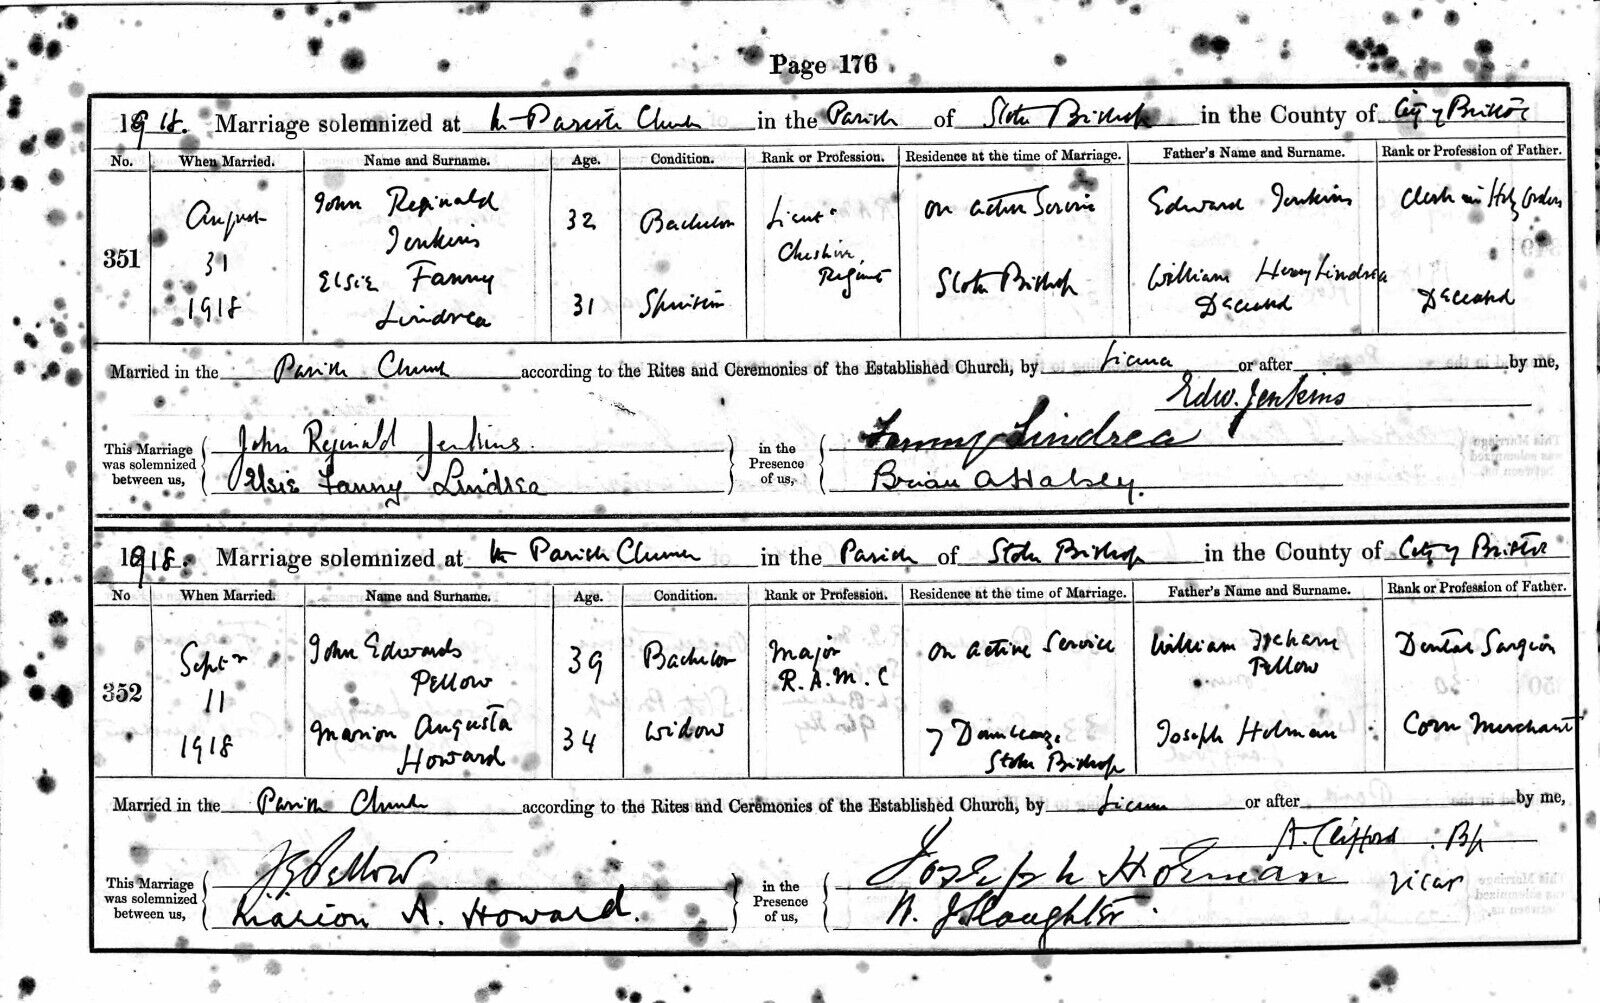 Page 176
1918. Marriage solemnized at the Parish Church in the Parish of Stoke Bishop in the County of City of Bristol
No. When Married. Name and Surname. Age. Condition. Rank or Profession. Residence at the time of Marriage. Father's Name and Surname. Rank or Profession of Father.
351 August 31 1918
John Reginald Jenkins 32 Bachelor Lieut. Cheshire Regiment on active Service Edward Jenkins Clerk in Holy Orders
Elsie Fanny Lindrea 31 Spinster Stoke Bishop William Henry Lindrea Deceased Deceased
Married in the Parish Church according to the Rites and Ceremonies of the Established Church, by Licence or after by me,
Edw. Jenkins
This Marriage was solemnized between us, John Reginald Jenkins Elsie Fanny Lindrea
in the Presence of us, Fanny Lindrea Brian A Halsey.
1918. Marriage solemnized at the Parish Church in the Parish of Stoke Bishop in the County of City of Bristol
No When Married. Name and Surname. Age. Condition. Rank or Profession. Residence at the time of Marriage. Father's Name and Surname. Rank or Profession of Father.
352 Septr 11 1918
John Edwards Pellow 39 Bachelor Major R.A.M.C on active Service William Pellow Dental Surgeon
Marion Augusta Howard 34 Widow 7 Stoke Bishop Joseph Holman Corn Merchant
Married in the Parish Church according to the Rites and Ceremonies of the Established Church, by Licence or after by me,
A. Clifford. Bp
Vicar
This Marriage was solemnized between us, J E Pellow Marion A. Howard.
in the Presence of us, Joseph Holman W. J Slaughter.